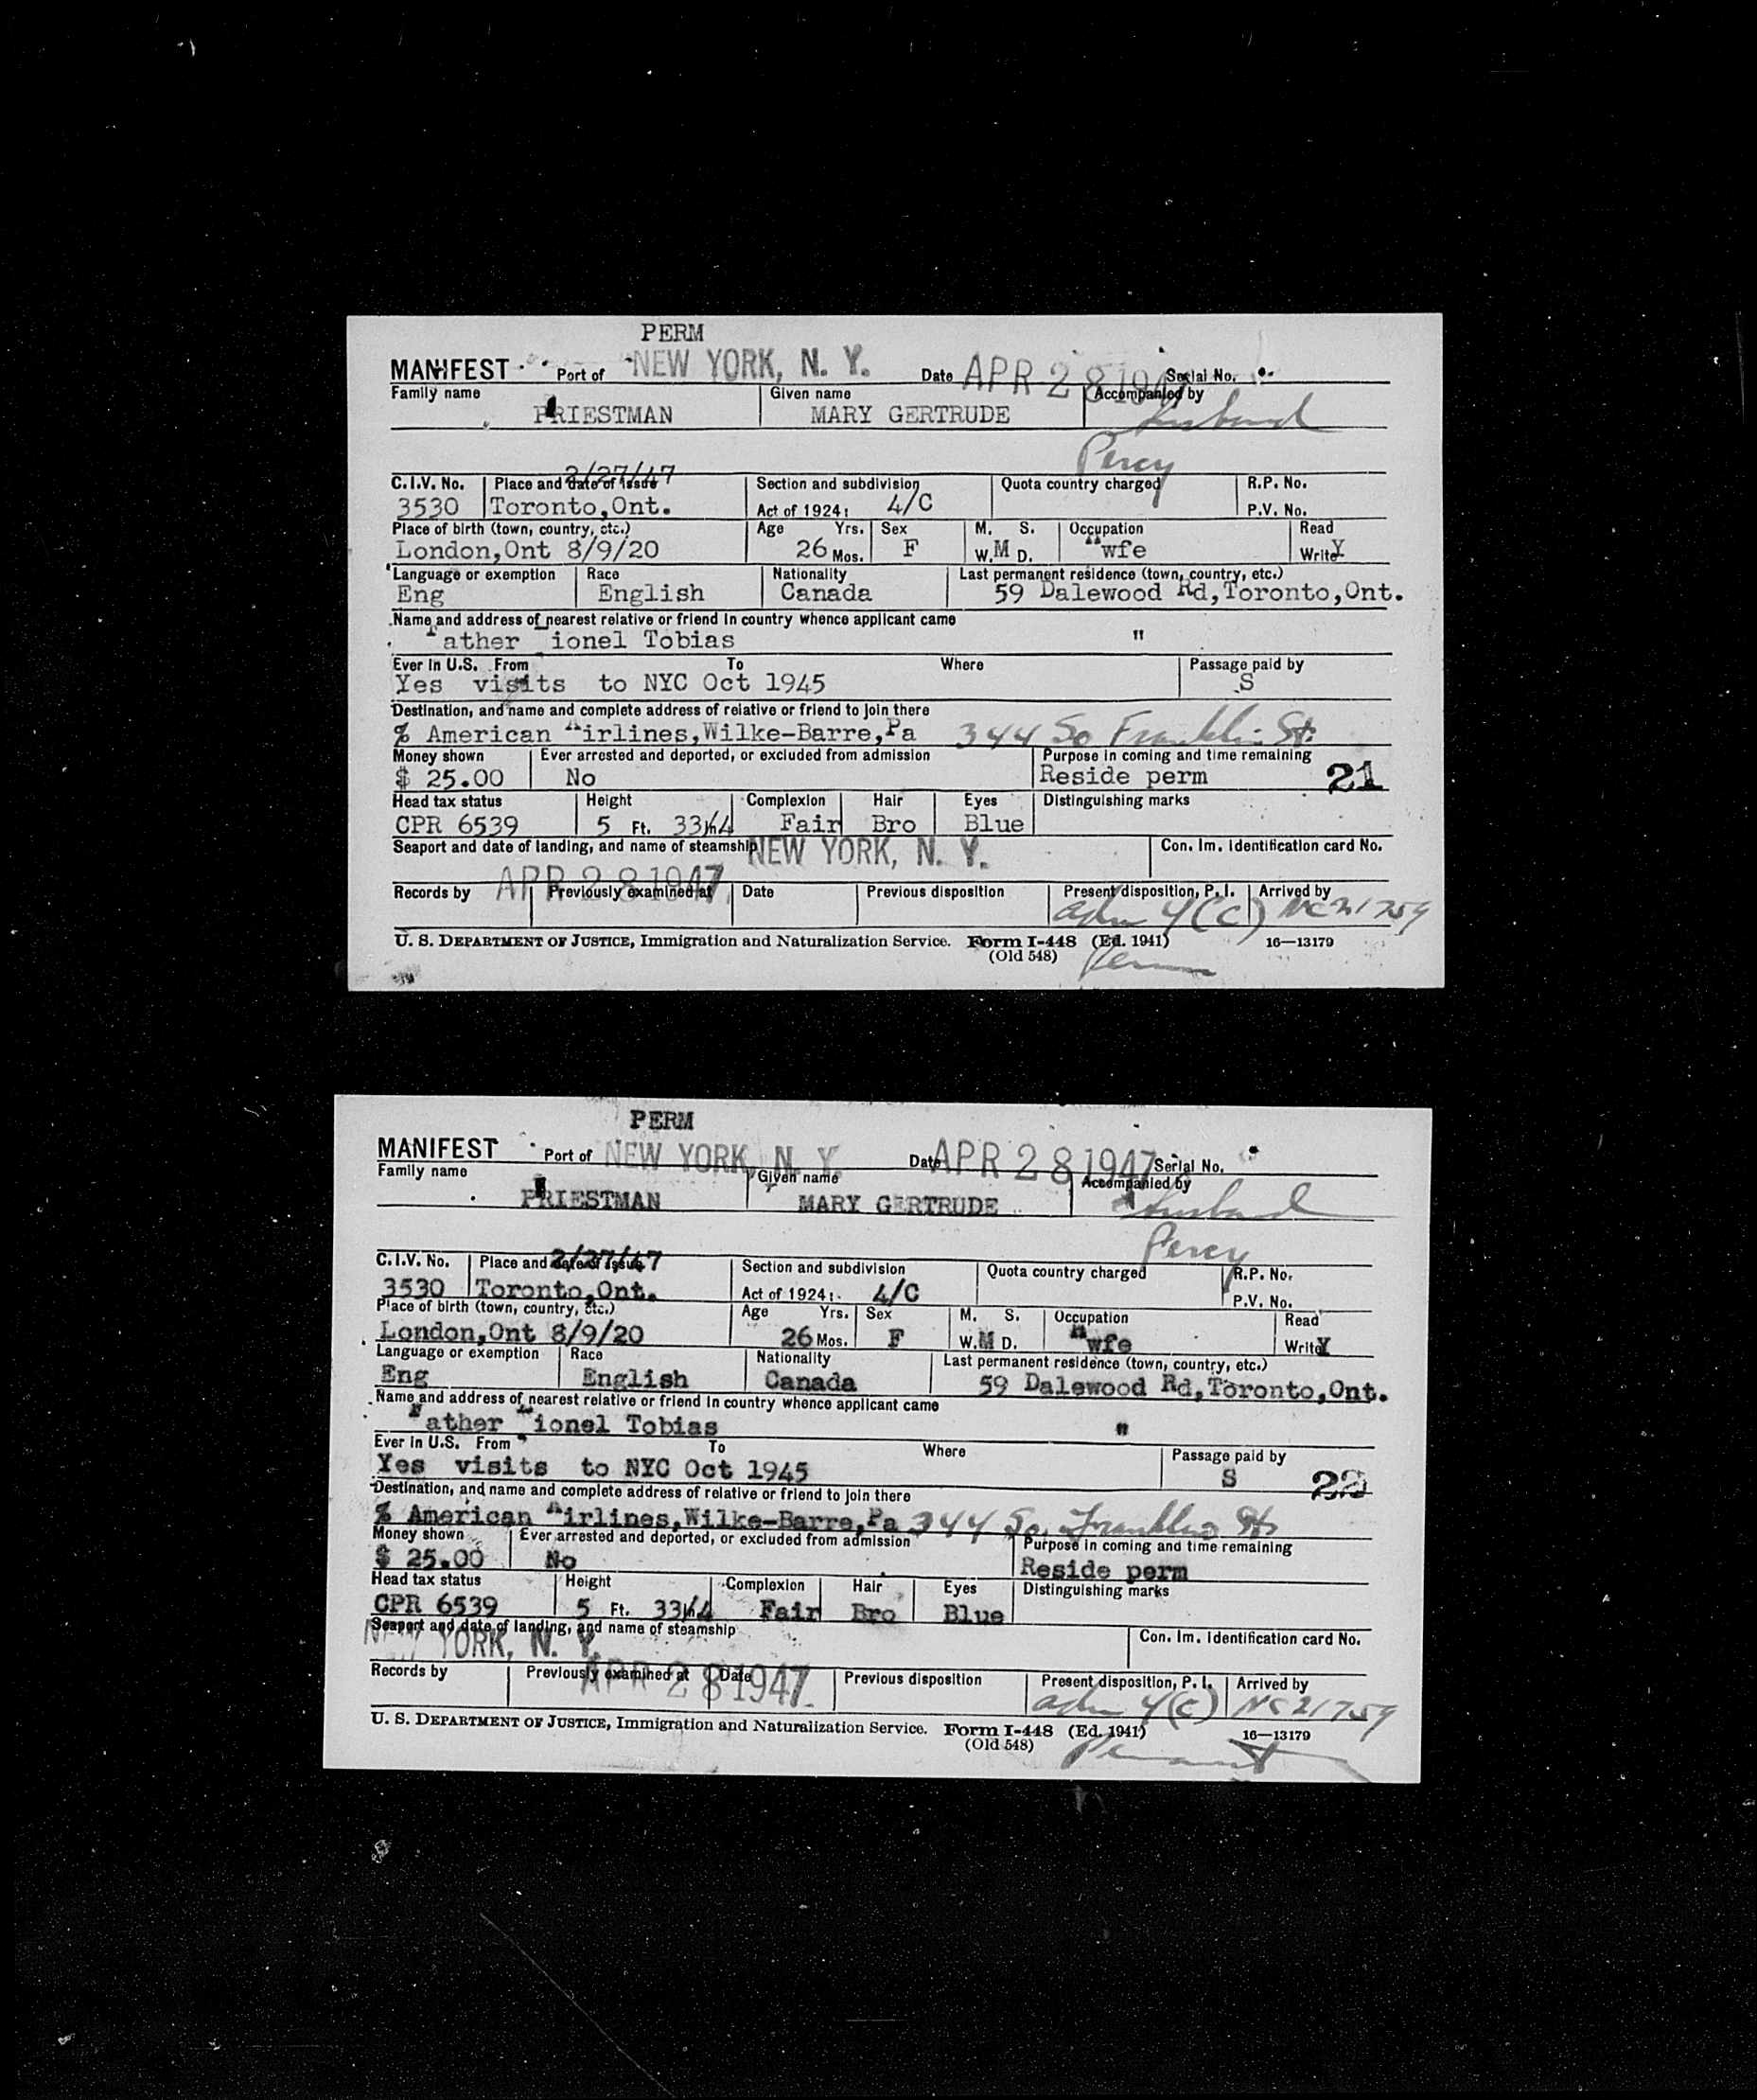 PERM
MANIFEST Port of NEW YORK, N. Y. Date APR 28 1947 Serial No.
Family name Given name Accompanied by
PRIESTMAN MARY GERTRUDE husband
Percy
2/27/47
C.I.V. No. Place and date of issue Section and subdivision Quota country charged R.P. No.
3530 Toronto,Ont. Act of 1924: 4/C P.V. No.
Place of birth (town, country, etc.) Age Yrs. Sex M. S. Occupation Read
London,Ont 8/9/20 26 Mos. F W. M D. wfe Write Y
Language or exemption Race Nationality Last permanent residence (town, country, etc.)
Eng English Canada 59 Dalewood Rd,Toronto,Ont.
Name and address of nearest relative or friend in country whence applicant came
ather ionel Tobias "
Ever in U.S. From To Where Passage paid by
Yes visits to NYC Oct 1945 S
Destination, and name and complete address of relative or friend to join there
% American Airlines,Wilke-Barre,Pa 344 So Franklin St.
Money shown Ever arrested and deported, or excluded from admission Purpose in coming and time remaining
$ 25.00 No Reside perm 21
Head tax status Height Complexion Hair Eyes Distinguishing marks
CPR 6539 5 Ft. 33/4 In. Fair Bro Blue
Seaport and date of landing, and name of steamship NEW YORK, N. Y. Con. Im. Identification card No.
APR 28 1947
Records by Previously examined at Date Previous disposition Present disposition, P. I. Arrived by
adm 4(C) NC 21759
U. S. DEPARTMENT OF JUSTICE, Immigration and Naturalization Service. Form I-448 (Ed. 1941) 16—13179
(Old 548) Perm
PERM
MANIFEST Port of NEW YORK, N. Y. Date APR 28 1947 Serial No.
Family name Given name Accompanied by
PRIESTMAN MARY GERTRUDE husband
Percy
2/27/47
C.I.V. No. Place and date of issue Section and subdivision Quota country charged R.P. No.
3530 Toronto,Ont. Act of 1924: 4/C P.V. No.
Place of birth (town, country, etc.) Age Yrs. Sex M. S. Occupation Read
London,Ont 8/9/20 26 Mos. F W. M D. wfe Write Y
Language or exemption Race Nationality Last permanent residence (town, country, etc.)
Eng English Canada 59 Dalewood Rd,Toronto,Ont.
Name and address of nearest relative or friend in country whence applicant came
Father Lionel Tobias "
Ever in U.S. From To Where Passage paid by
Yes visits to NYC Oct 1945 S 22
Destination, and name and complete address of relative or friend to join there
% American Airlines,Wilke-Barre,Pa 344 So. Franklin St
Money shown Ever arrested and deported, or excluded from admission Purpose in coming and time remaining
$ 25.00 No Reside perm
Head tax status Height Complexion Hair Eyes Distinguishing marks
CPR 6539 5 Ft. 33/4 In. Fair Bro Blue
Seaport and date of landing, and name of steamship Con. Im. Identification card No.
NEW YORK, N. Y.
Records by Previously examined at Date Previous disposition Present disposition, P. I. Arrived by
APR 28 1947 adm 4(C) NC 21759
U. S. DEPARTMENT OF JUSTICE, Immigration and Naturalization Service. Form I-448 (Ed. 1941) 16—13179
(Old 548)